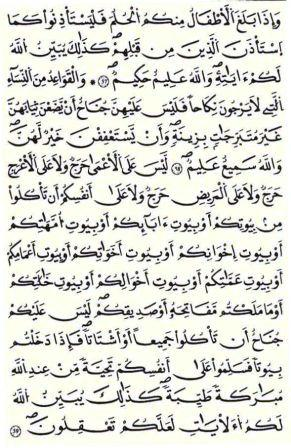 وَإِذَا بَلَغَ الْأَطْفَالُ مِنكُمُ الْحُلُمَ فَلْيَسْتَأْذِنُوا كَمَا
اسْتَأْذَنَ الَّذِينَ مِن قَبْلِهِمْ كَذَٰلِكَ يُبَيِّنُ اللَّهُ
لَكُمْ ءَايَٰتِهِ وَاللَّهُ عَلِيمٌ حَكِيمٌ وَالْقَوَاعِدُ مِنَ النِّسَاءِ
الَّٰتِي لَا يَرْجُونَ نِكَاحًا فَلَيْسَ عَلَيْهِنَّ جُنَاحٌ أَن يَضَعْنَ ثِيَابَهُنَّ
غَيْرَ مُتَبَرِّجَٰتٍ بِزِينَةٍ وَأَن يَسْتَعْفِفْنَ خَيْرٌ لَّهُنَّ
وَاللَّهُ سَمِيعٌ عَلِيمٌ لَيْسَ عَلَى الْأَعْمَىٰ حَرَجٌ وَلَا عَلَى الْأَعْرَجِ
حَرَجٌ وَلَا عَلَى الْمَرِيضِ حَرَجٌ وَلَا عَلَىٰ أَنفُسِكُمْ أَن تَأْكُلُوا
مِن بُيُوتِكُمْ أَوْ بُيُوتِ ءَابَائِكُمْ أَوْ بُيُوتِ أُمَّهَٰتِكُمْ
أَوْ بُيُوتِ إِخْوَٰنِكُمْ أَوْ بُيُوتِ أَخَوَٰتِكُمْ أَوْ بُيُوتِ أَعْمَٰمِكُمْ
أَوْ بُيُوتِ عَمَّٰتِكُمْ أَوْ بُيُوتِ أَخْوَٰلِكُمْ أَوْ بُيُوتِ خَٰلَٰتِكُمْ
أَوْ مَا مَلَكْتُم مَّفَاتِحَهُ أَوْ صَدِيقِكُمْ لَيْسَ عَلَيْكُمْ
جُنَاحٌ أَن تَأْكُلُوا جَمِيعًا أَوْ أَشْتَاتًا فَإِذَا دَخَلْتُم
بُيُوتًا فَسَلِّمُوا عَلَىٰ أَنفُسِكُمْ تَحِيَّةً مِّنْ عِندِ اللَّهِ
مُبَٰرَكَةً طَيِّبَةً كَذَٰلِكَ يُبَيِّنُ اللَّهُ
لَكُمُ الْأَيَٰتِ لَعَلَّكُمْ تَعْقِلُونَ